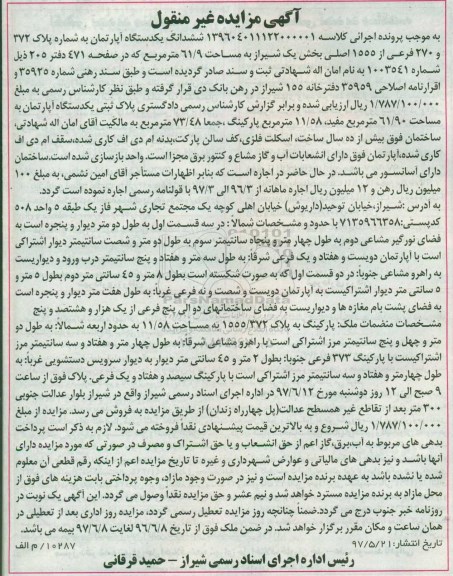 آگهی مزایده غیر منقول
به موجب پرونده اجرائی کلاسه ۱۳۹۶۰۴۰۱۱۱۲۲۰۰۰۰۰۱ ششدانگ یکدستگاه آپارتمان به شماره پلاک ۳۷۲
و ۲۷۰ فرعی از ۱۵۵۵ اصلی بخش یک شیراز به مساحت ۶۱/۹ مترمربع که در صفحه ۴۷۱ دفتر ۲۰۵ ذیل
شماره ۱۰۰۳۵۴۱ به نام امان اله شهادتی ثبت و سند صادر گردیده است و طبق سند رهنی شماره ۳۵۹۲۵ و
اقرارنامه اصلاحی ۳۵۹۵۹ دفترخانه ۱۵۵ شیراز در رهن بانک دی قرار گرفته و طبق نظر کارشناس رسمی به مبلغ
۱/۷۸۷/۱۰۰/۰۰۰ ریال ارزیابی شده و برابر گزارش کارشناس رسمی دادگستری پلاک ثبتی یکدستگاه آپارتمان به
مساحت ۶۱/۹۰ مترمربع مفید، ۱۱/۵۸ مترمربع پارکینگ ،جمعا ۷۳/۴۸ مترمربع به مالکیت آقای امان اله شهادتی،
ساختمان فوق بیش از ده سال ساخت، اسکلت فلزی، کف سالن پارکت،بدنه ام دی اف کاری شده،سقف ام دی اف
کاری شده،آپارتمان فوق دارای انشعابات آب و گاز مشاع و کنتور برق مجزا است. واحد بازسازی شده است.ساختمان
دارای آسانسور می باشد. در حال حاضر در اجاره است که بنابر اظهارات مستأجر آقای امین نشمی، به مبلغ ۱۰۰
میلیون ریال رهن و ۱۲ میلیون ریال اجاره ماهانه از ۹۶/۳ الی ۹۷/۳ با قولنامه رسمی اجاره نموده است گردد.
به آدرس :شیراز،خیابان توحید(داریوش) خیابان اهلی کوچه یک مجتمع تجاری شهر فاز یک طبقه ۵ واحد ۵۰۸
کدپستی:۷۱۳۵۹۶۶۳۵۸ با حدود و مشخصات شمالا : در سه قسمت اول به طول دو متر دیوار و پنجره است به
فضای نورگیر مشاعی دوم به طول چهار متر و پنجاه سانتیمتر سوم به طول دو متر و شصت سانتیمتر دیوار اشتراکی
است با آپارتمان دویست و هفتاد و یک فرعی شرقا: به طول سه متر و هفتاد و پنج سانتیمتر درب ورود و دیواریست
به راهرو مشاعی جنوبا: در دو قسمت اول که به صورت شکسته است بطول ۸ متر و ۴۵ سانتی متر دوم بطول ۵ متر و
۵ سانتی متر دیوار اشتراکیست به آپارتمان دویست و شصت و نه فرعی غربا: به طول هفت متر دیوار و پنجره است
به فضای پشت بام مغازه ها و دیواریست به فضای ساختمانهای دو الی پنج فرعی از یک هزار و هشتصد و پنج
مشخصات منضمات ملک: پارکینگ به پلاک ۱۵۵۵/۳۷۲ به مساحت ۱۱/۵۸ به حدود اربعه شمالا: به طول دو
متر و چهل و پنج سانتیمتر مرز اشتراکی است با راهرو مشاعی شرقا: به طول چهار متر و هفتاد و سه سانتیمتر مرز
اشتراکیست با پارکینگ ۳۷۳ فرعی جنوبا: بطول ۲ متر و ۴۵ سانتی متر دیوار به دیوار سرویس دستشویی غربا: به
طول چهارمتر و هفتاد و سه سانتیمتر مرز اشتراکی است با پارکینگ سیصد و هفتاد و یک فرعی. پلاک فوق از ساعت
۹ صبح الی ۱۲ روز دوشنبه مورخ ۹۷/۶/۱۲ در اداره اجرای اسناد رسمی شیراز واقع در شیراز بلوار عدالت جنوبی
۳۰۰ متر بعد از تقاطع غیر همسطح عدالت(پل چهارراه زندان) از طریق مزایده به فروش می رسد. مزایده از مبلغ
۱/۷۸۷/۱۰۰/۰۰۰ ریال شروع و به بالاترین قیمت پیشنهادی نقدا فروخته می شود. لازم به ذکر است پرداخت
بدهی های مربوط به آب،برق،گاز اعم از حق انشعاب و یا حق اشتراک و مصرف در صورتی که مورد مزایده دارای
آنها باشد و نیز بدهی های مالیاتی و عوارض شهرداری و غیره تا تاریخ مزایده اعم از اینکه رقم قطعی آن معلوم
شده یا نشده باشد به عهده برنده مزایده است و نیز در صورت وجود مازاد، وجوه پرداختی بابت هزینه های فوق از
محل مازاد به برنده مزایده مسترد خواهد شد و نیم عشر و حق مزایده نقدا وصول می گردد. این آگهی یک نوبت در
روزنامه خبر جنوب درج می گردد.ضمنا چنانچه روز مزایده تعطیل رسمی گردد، مزایده روز اداری بعد از تعطیلی در
همان ساعت و مکان مقرر برگزار خواهد شد. در ضمن ملک فوق از تاریخ ۹۶/۶/۸ لغایت ۹۷/۶/۸ بیمه می باشد.
تاریخ انتشار: ۹۷/۵/۲۱
۱۰۲۸۷/ م الف
رئیس اداره اجرای اسناد رسمی شیراز – حمید قرقانی